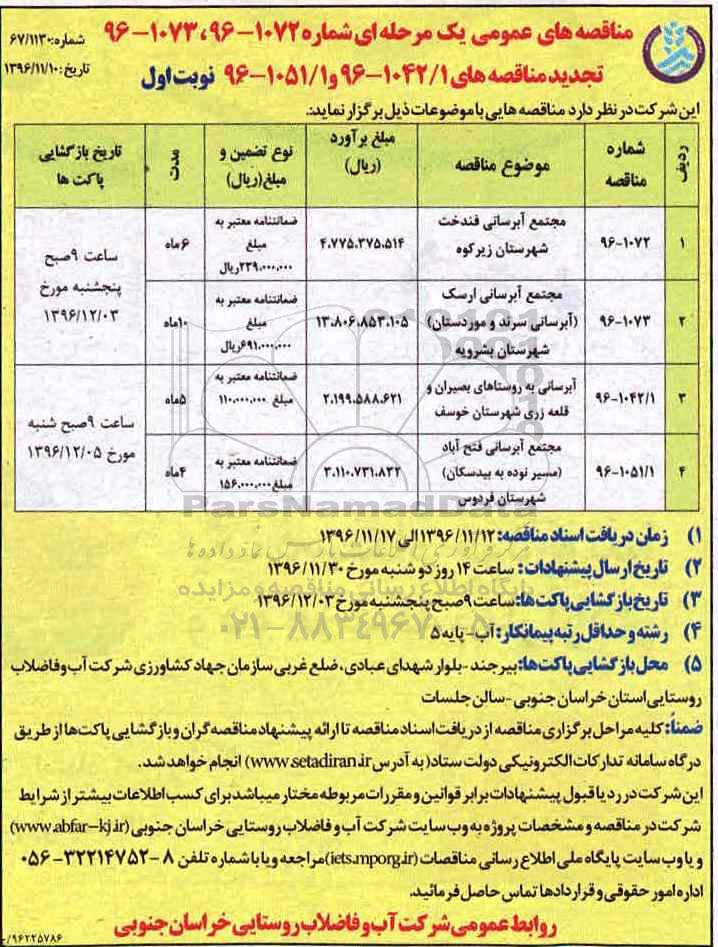 مناقصه های عمومی یک مرحله ای شماره ۱۰۷۲-۹۶، ۱۰۷۳-۹۶
تجدید مناقصه های ۱۰۴۲/۱-۹۶ و ۱۰۵۱/۱-۹۶ نوبت اول
شماره: ۶۷/۱۱۳۰
تاریخ: ۱۳۹۶/۱۱/۱۰
این شرکت در نظر دارد مناقصه هایی با موضوعات ذیل برگزار نماید:
ردیف | شماره مناقصه | موضوع مناقصه | مبلغ برآورد (ریال) | نوع تضمین و مبلغ (ریال) | مدت | تاریخ بازگشایی پاکت ها
۱ | ۹۶-۱۰۷۲ | مجتمع آبرسانی فندخت شهرستان زیرکوه | ۴.۷۷۵.۳۷۵.۵۱۴ | ضمانتنامه معتبر به مبلغ ۲۳۹.۰۰۰.۰۰۰ ریال | ۶ ماه | ساعت ۹ صبح پنجشنبه مورخ ۱۳۹۶/۱۲/۰۳
۲ | ۹۶-۱۰۷۳ | مجتمع آبرسانی ارسک (آبرسانی سرند و موردستان) شهرستان بشرویه | ۱۳.۸۰۶.۸۵۳.۱۰۵ | ضمانتنامه معتبر به مبلغ ۶۹۱.۰۰۰.۰۰۰ ریال | ۱۰ ماه
۳ | ۹۶-۱۰۴۲/۱ | آبرسانی به روستاهای بصیران و قلعه زری شهرستان خوسف | ۲.۱۹۹.۵۸۸.۶۲۱ | ضمانتنامه معتبر به مبلغ ۱۱۰.۰۰۰.۰۰۰ | ۵ ماه | ساعت ۹ صبح شنبه مورخ ۱۳۹۶/۱۲/۰۵
۴ | ۹۶-۱۰۵۱/۱ | مجتمع آبرسانی فتح آباد (مسیر نوده به بیدسکان) شهرستان فردوس | ۳.۱۱۰.۷۳۱.۸۳۲ | ضمانتنامه معتبر به مبلغ ۱۵۶.۰۰۰.۰۰۰ | ۴ ماه
ParsNamadData
۱) زمان دریافت اسناد مناقصه: ۱۳۹۶/۱۱/۱۲ الی ۱۳۹۶/۱۱/۱۷
۲) تاریخ ارسال پیشنهادات: ساعت ۱۴ روز دو شنبه مورخ ۱۳۹۶/۱۱/۳۰
پایگاه اطلاع رسانی مناقصه و مزایده
۳) تاریخ بازگشایی پاکت ها: ساعت ۹ صبح پنجشنبه مورخ ۱۳۹۶/۱۲/۰۳
۰۲۱-۸۸۳۴۹۶۷۰-۵
۴) رشته و حداقل رتبه پیمانکار: آب - پایه ۵
۵) محل بازگشایی پاکت ها: بیرجند - بلوار شهدای عبادی، ضلع غربی سازمان جهاد کشاورزی شرکت آب و فاضلاب
روستایی استان خراسان جنوبی - سالن جلسات
ضمناً: کلیه مراحل برگزاری مناقصه از دریافت اسناد مناقصه تا ارائه پیشنهاد مناقصه گران و بازگشایی پاکت ها از طریق
درگاه سامانه تدارکات الکترونیکی دولت ستاد (به آدرس www.setadiran.ir) انجام خواهد شد.
این شرکت در رد یا قبول پیشنهادات برابر قوانین و مقررات مربوطه مختار میباشد برای کسب اطلاعات بیشتر از شرایط
شرکت در مناقصه و مشخصات پروژه به وب سایت شرکت آب و فاضلاب روستایی خراسان جنوبی (www.abfar-kj.ir)
و یا وب سایت پایگاه ملی اطلاع رسانی مناقصات (iets.mporg.ir) مراجعه و یا با شماره تلفن ۸ - ۳۲۲۱۴۷۵۲-۰۵۶
اداره امور حقوقی و قراردادها تماس حاصل فرمائید.
روابط عمومی شرکت آب و فاضلاب روستایی خراسان جنوبی
۹۶۲۲۵۷۸۶/